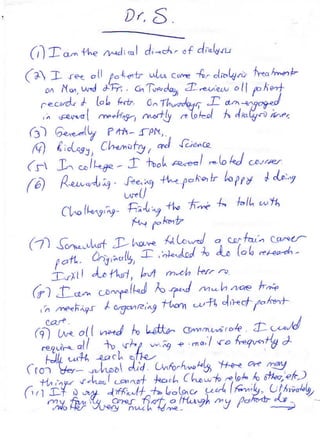 Dr. S.
(1) I am the medical director of dialysis
(2) I see all patients who come for dialysis treatments
on Mon, Wed & Fri. On Tuesday, I review all patient
records & lab tests. On Thursdays, I am engaged
in several meetings, mostly related to dialysis issues.
(3) Generally 7AM - 5PM.
(4) Biology, Chemistry, and Science
(5) In college - I took several related courses.
(6) Rewarding - Seeing the patients happy & doing
well
Challenging - Finding the time to talk with
the patients
(7) Somewhat I have followed a certain career
path. Originally, I intended to do lab research -
I still do that, but much less so.
(8) I am compelled to spend much more time
in meetings & organizing than with direct patient
care.
(9) We all need to better communicate. I would
require all to stop using e-mail so frequently &
talk with each other
(10) school did. Unfortunately, there are many
things school cannot teach (how to relate to others, etc.)
(11) It is very difficult to balance work/family. Ultimately,
my family comes first, although my patients do
matter very much to me.